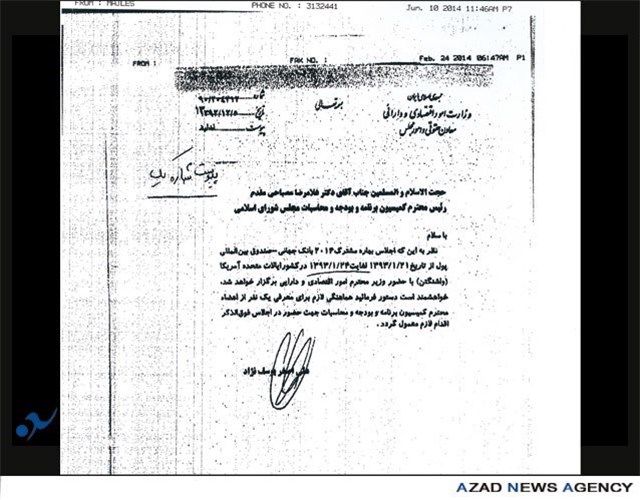 FROM : MAJLES PHONE NO. : 3132441 Jun. 10 2014 11:46AM P7
FROM : FAX NO. : Feb. 24 2014 06:47AM P1
جمهوری اسلامی ایران
وزارت امور اقتصادی و دارایی
معاون حقوقی و امور مجلس
بسمه تعالی
شماره
تاریخ ۱۳۹۲/۱۲/۵
پیوست ندارد
پیوست شماره یک
حجت الاسلام و المسلمین جناب آقای دکتر غلامرضا مصباحی مقدم
رئیس محترم کمیسیون برنامه و بودجه و محاسبات مجلس شورای اسلامی
با سلام
نظر به این که اجلاس بهاره مشترک ۲۰۱۴ بانک جهانی-صندوق بین‌المللی
پول از تاریخ ۱۳۹۳/۱/۲۱ لغایت ۱۳۹۳/۱/۲۴ در کشور ایالات متحده آمریکا
(واشنگتن) با حضور وزیر محترم امور اقتصادی و دارایی برگزار خواهد شد،
خواهشمند است دستور فرمائید هماهنگی لازم برای معرفی یک نفر از اعضاء
محترم کمیسیون برنامه و بودجه و محاسبات جهت حضور در اجلاس فوق‌الذکر
اقدام لازم معمول گردد.
علی اصغر یوسف نژاد
AZAD NEWS AGENCY